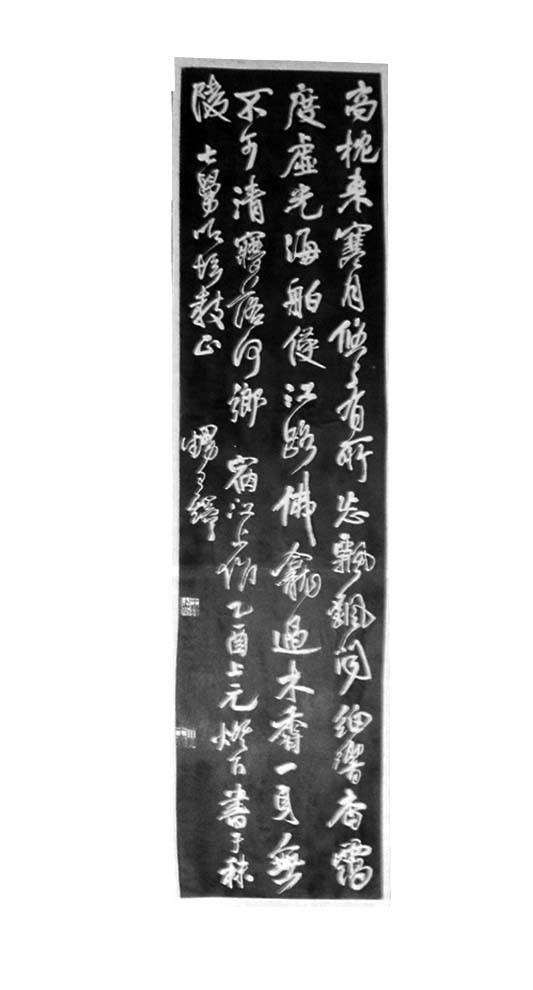 高枕來寒月悠〻有所忘飄颻聞細響杳靄
度虛光海舶侵江路佛龕過木香一身無
不可清寤落何鄉 宿江上作乙酉上元燈下書于秣
陵 吟壇教正 王鐸